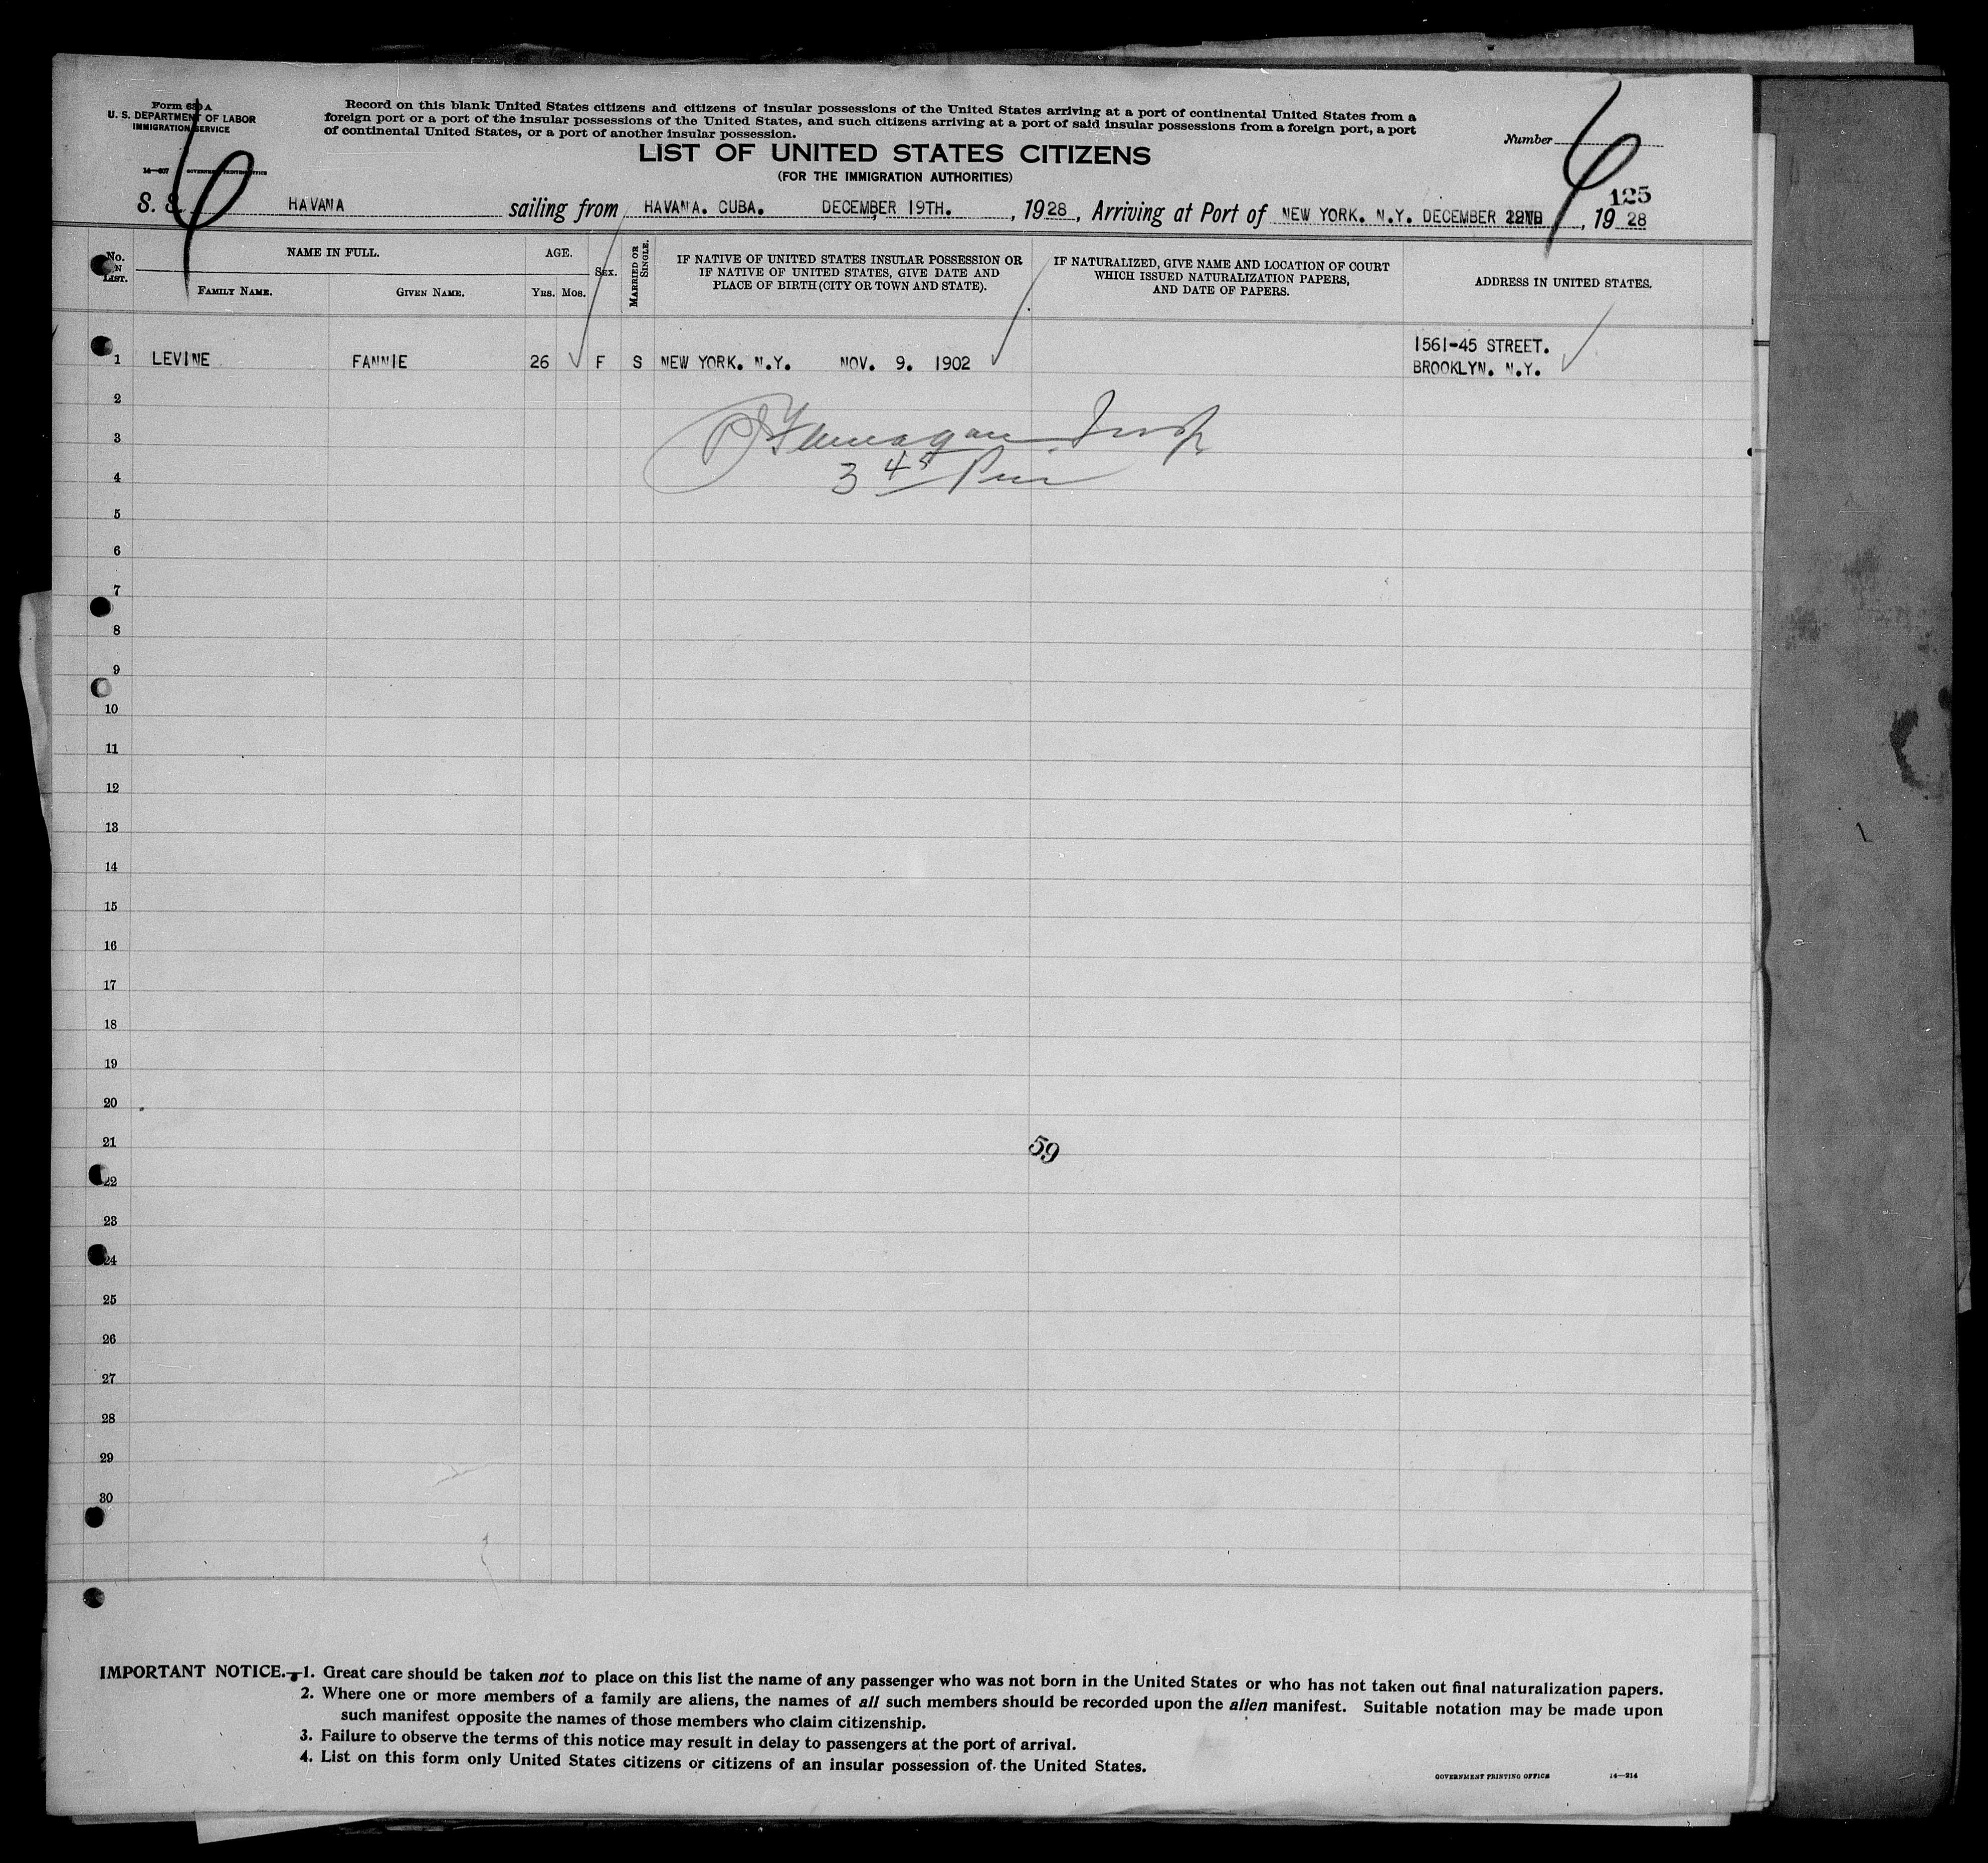 Form 630 A
U. S. DEPARTMENT OF LABOR
IMMIGRATION SERVICE
14—607 GOVERNMENT PRINTING OFFICE
Record on this blank United States citizens and citizens of insular possessions of the United States arriving at a port of continental United States from a
foreign port or a port of the insular possessions of the United States, and such citizens arriving at a port of said insular possessions from a foreign port, a port
of continental United States, or a port of another insular possession.
LIST OF UNITED STATES CITIZENS
(FOR THE IMMIGRATION AUTHORITIES)
Number 6
6
125
S. S. HAVANA sailing from HAVANA. CUBA. DECEMBER 19TH. , 1928, Arriving at Port of NEW YORK. N.Y. DECEMBER , 19 28
No. ON LIST. NAME IN FULL. AGE. SEX. MARRIED OR SINGLE. IF NATIVE OF UNITED STATES INSULAR POSSESSION OR IF NATIVE OF UNITED STATES, GIVE DATE AND PLACE OF BIRTH (CITY OR TOWN AND STATE). IF NATURALIZED, GIVE NAME AND LOCATION OF COURT WHICH ISSUED NATURALIZATION PAPERS, AND DATE OF PAPERS. ADDRESS IN UNITED STATES.
FAMILY NAME. GIVEN NAME. YRS. MOS.
1 LEVINE FANNIE 26 F S NEW YORK. N.Y. NOV. 9. 1902 1561-45 STREET.
BROOKLYN. N.Y.
2
3
3 45
4
5
6
7
8
9
10
11
12
13
14
15
16
17
18
19
20
21
59
22
23
24
25
26
27
28
29
30
IMPORTANT NOTICE.—1. Great care should be taken not to place on this list the name of any passenger who was not born in the United States or who has not taken out final naturalization papers.
2. Where one or more members of a family are aliens, the names of all such members should be recorded upon the alien manifest. Suitable notation may be made upon
such manifest opposite the names of those members who claim citizenship.
3. Failure to observe the terms of this notice may result in delay to passengers at the port of arrival.
4. List on this form only United States citizens or citizens of an insular possession of the United States.
GOVERNMENT PRINTING OFFICE 14—214